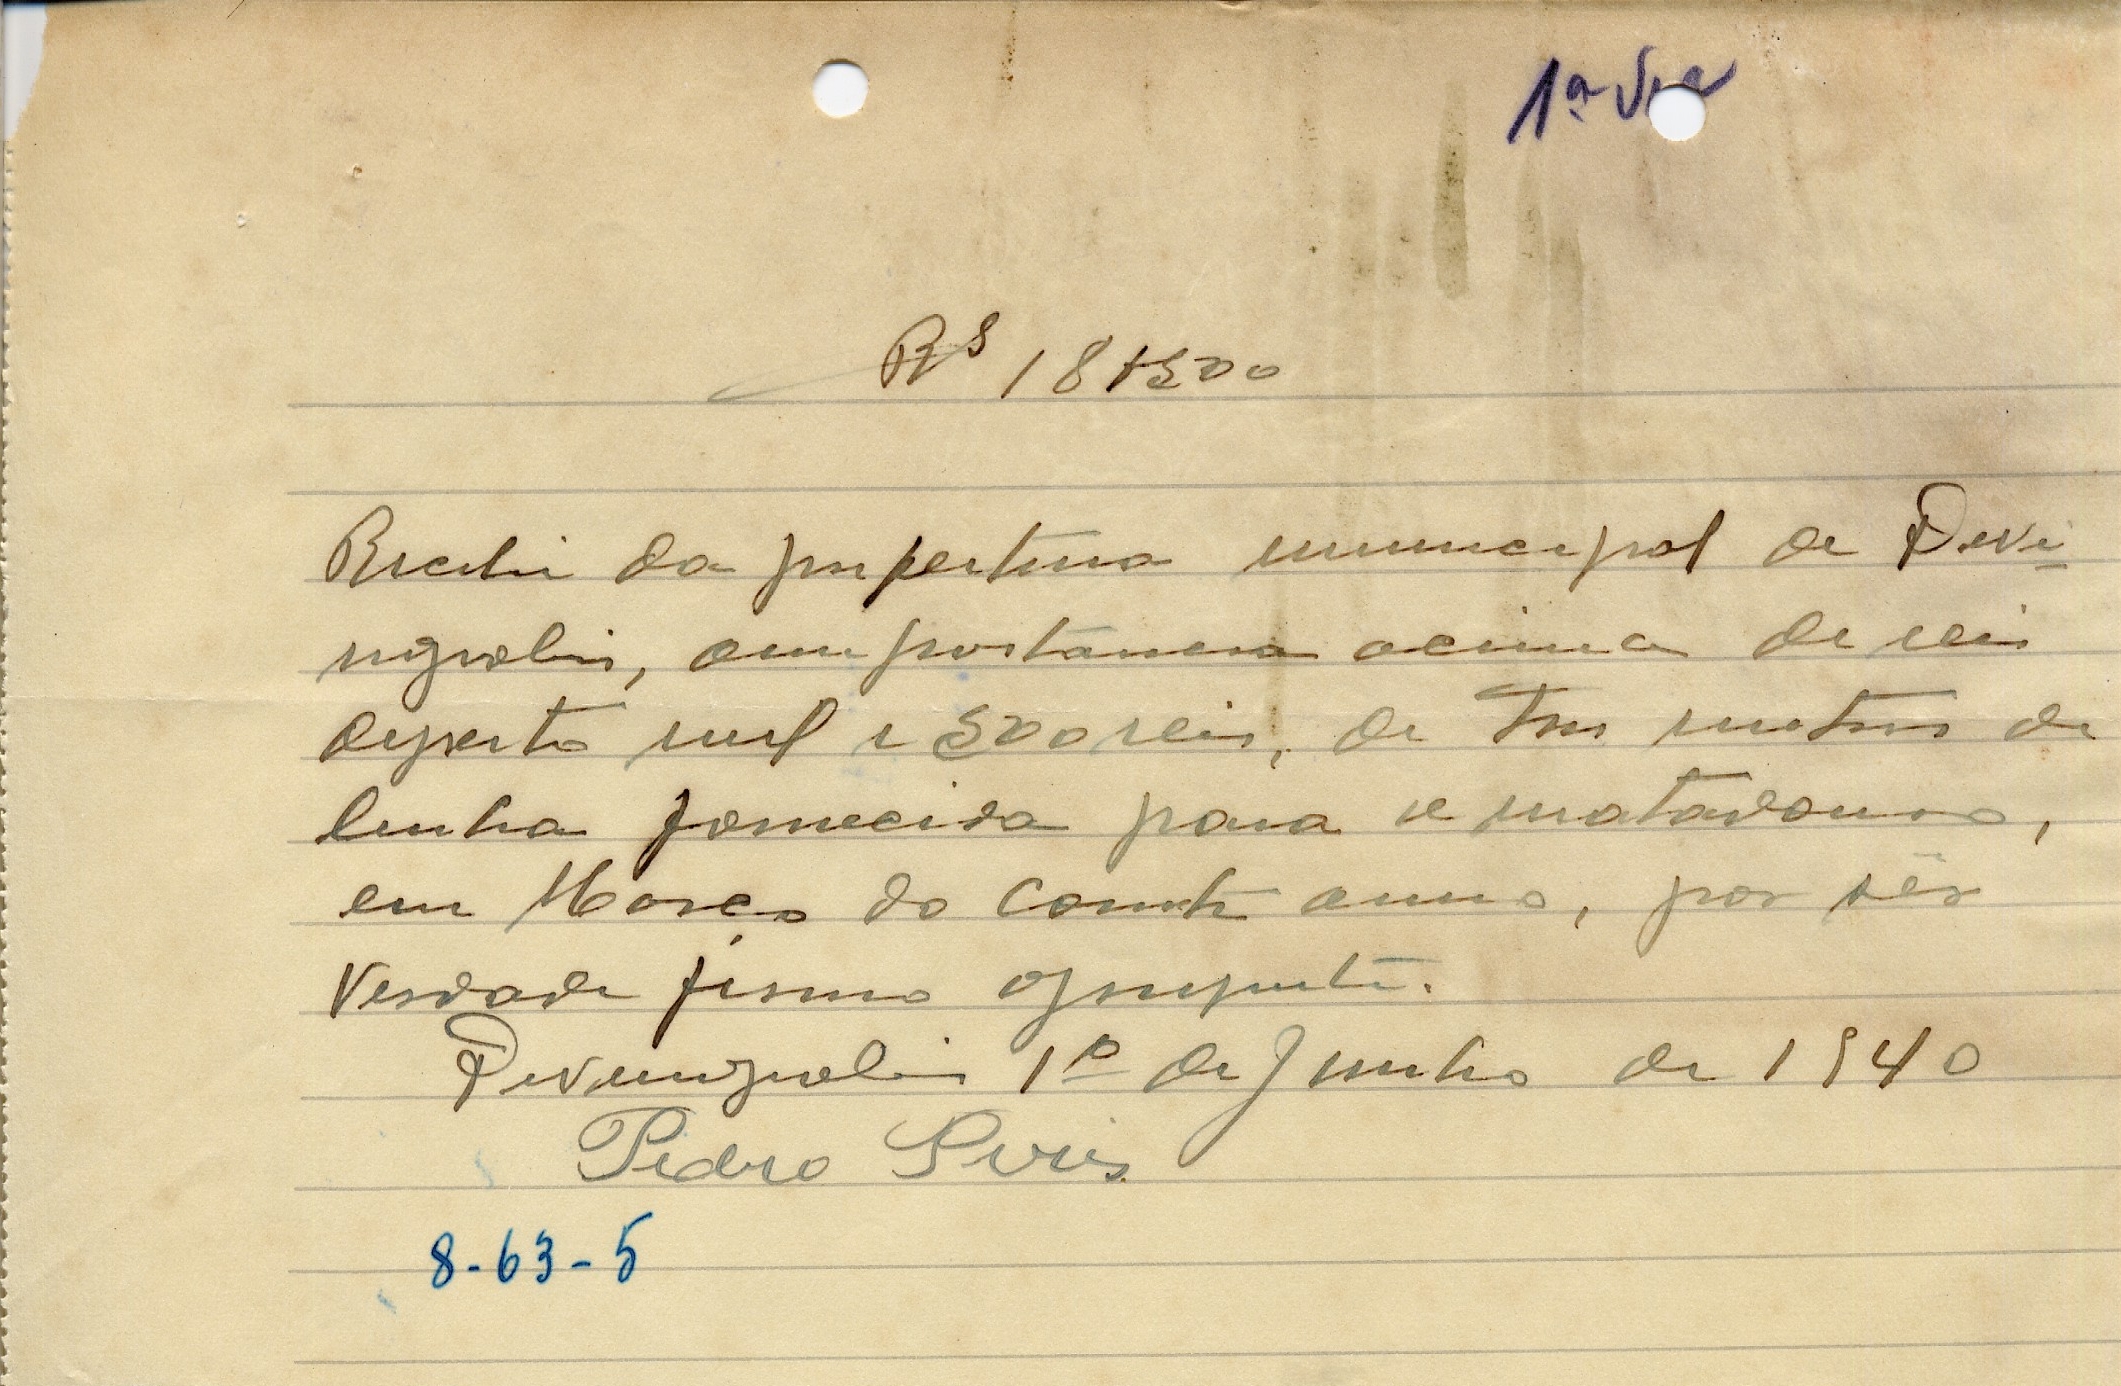 1ª Via
Rs 18$500
Recebi da prefeitura municipal de Devi-
nopolis, a importancia acima de reis
dezoito mil e 500 reis, de tres metros de
lenha fornecida para o matadouro,
em Março do corrente anno, por sêr
verdade firmo o presente.
Devinopolis 1º de Junho de 1940
Pedro
8-63-5